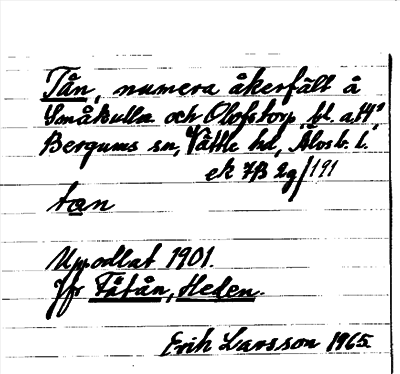 Tån, numera åkerfält å
Småkulla och Olofstorp, bl. a. 14²,
Bergums sn, Vättle hd, Älvsb. l.
ek 7B 2g/191
tan
Uppodlat 1901.
Jfr Fåtån, Heden.
Erik Larsson 1965.